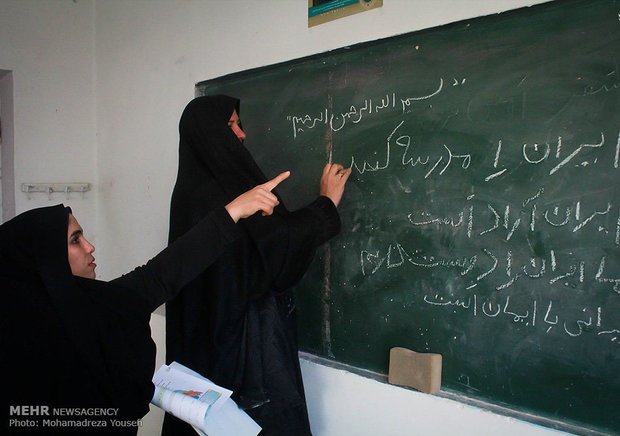 "بسم الله الرحمن الرحیم"
ایران را مدرسه
ایران آزاد است
ما ایران را دوست داریم
با ایمان است
MEHR NEWSAGENCY
Photo: Mohamadreza Yousefi